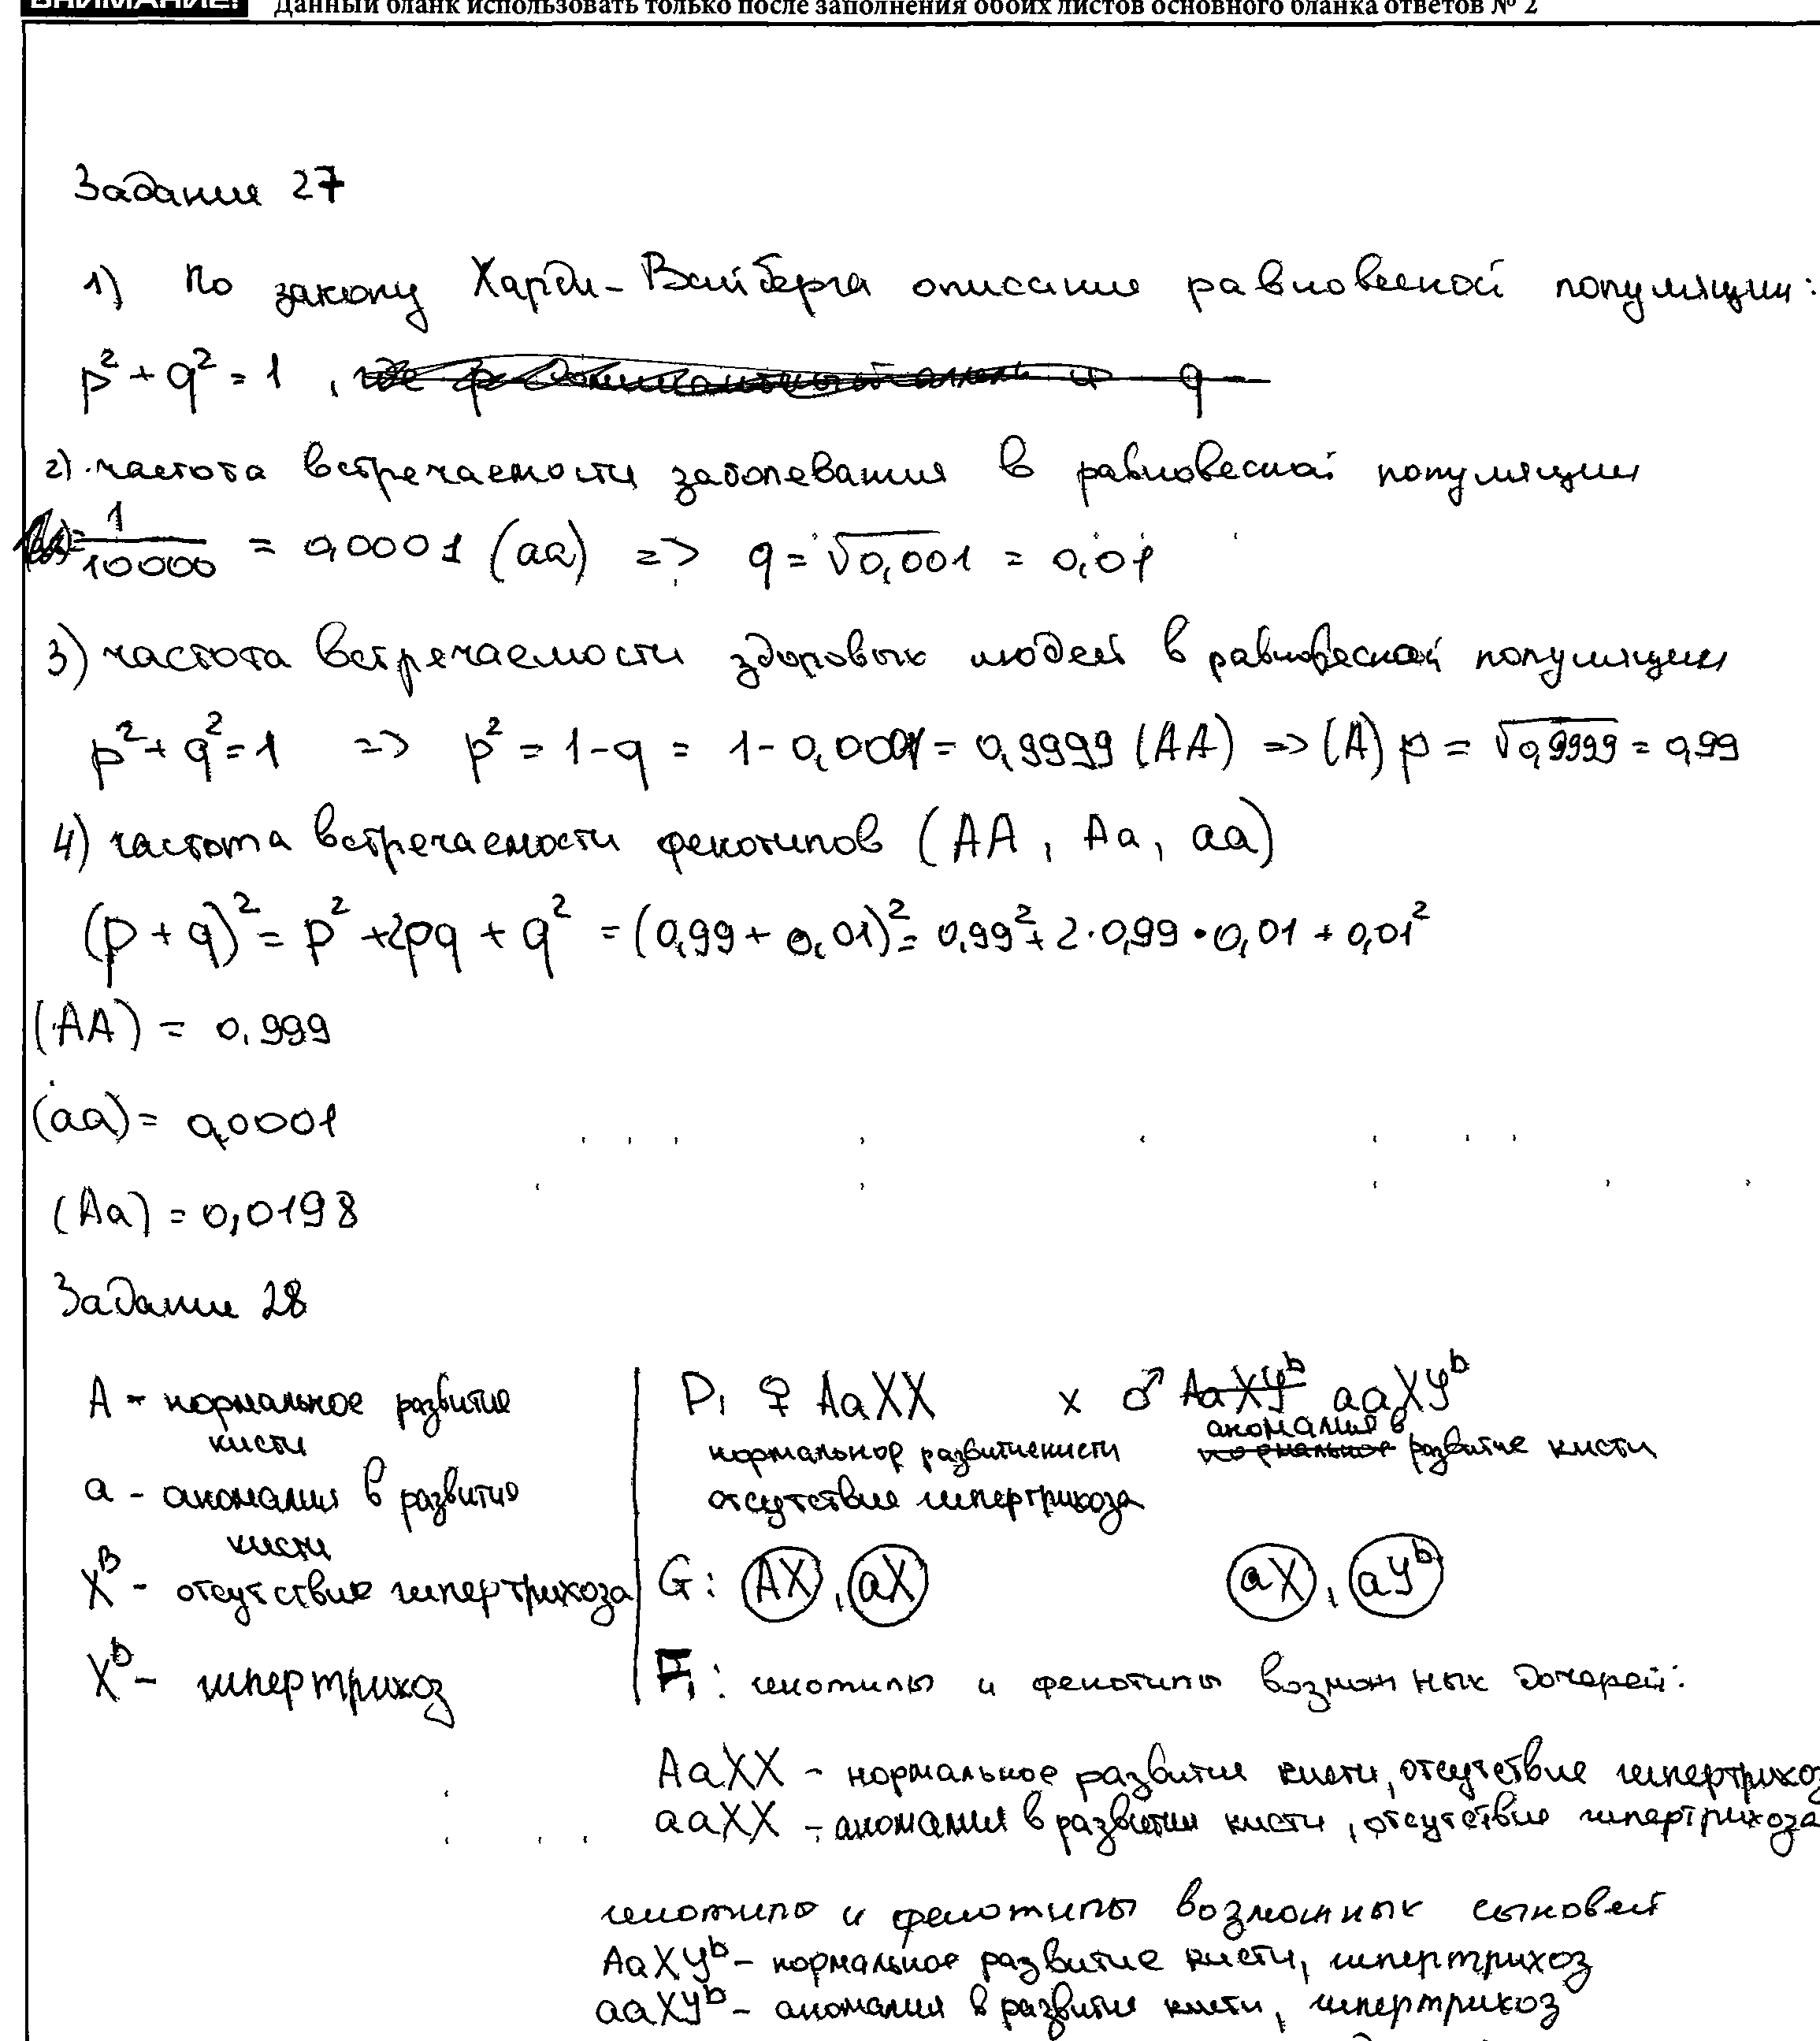 ВНИМАНИЕ! Данный бланк использовать только после заполнения обоих листов основного бланка ответов № 2
Задание 27
1) По закону Харди-Вайнберга описание равновесной популяции:
p² + q² = 1 ,
2) частота встречаемости заболевания в равновесной популяции
1/10000 = 0,0001 (aa) => q = √0,001 = 0,01
3) частота встречаемости здоровых людей в равновесной популяции
p² + q² = 1 => p² = 1 - q = 1 - 0,0001 = 0,9999 (AA) => (A) p = √0,9999 = 0,99
4) частота встречаемости фенотипов (AA, Aa, aa)
(p + q)² = p² + 2pq + q² = (0,99 + 0,01)² = 0,99² + 2·0,99·0,01 + 0,01²
(AA) = 0,999
(aa) = 0,0001
(Aa) = 0,0198
Задание 28
A - нормальное развитие
кисти
a - аномалия в развитию
кисти
Xᴮ - отсутствие гипертрихоза
Xᵇ - гипертрихоз
P₁ ♀ AaXX x ♂ AaXYᵇ aaXYᵇ
нормальное развитие кисти аномалия в нормальное развитие кисти
отсутствие гипертрихоза
G: AX, aX aX, aYᵇ
F₁: генотипы и фенотипы возможных дочерей:
AaXX - нормальное развитие кисти, отсутствие гипертрихоз
aaXX - аномалия в развитии кисти, отсутствие гипертрихоза
генотипы и фенотипы возможных сыновей
AaXYᵇ - нормальное развитие кисти, гипертрихоз
aaXYᵇ - аномалия в развитие кисти, гипертрихоз